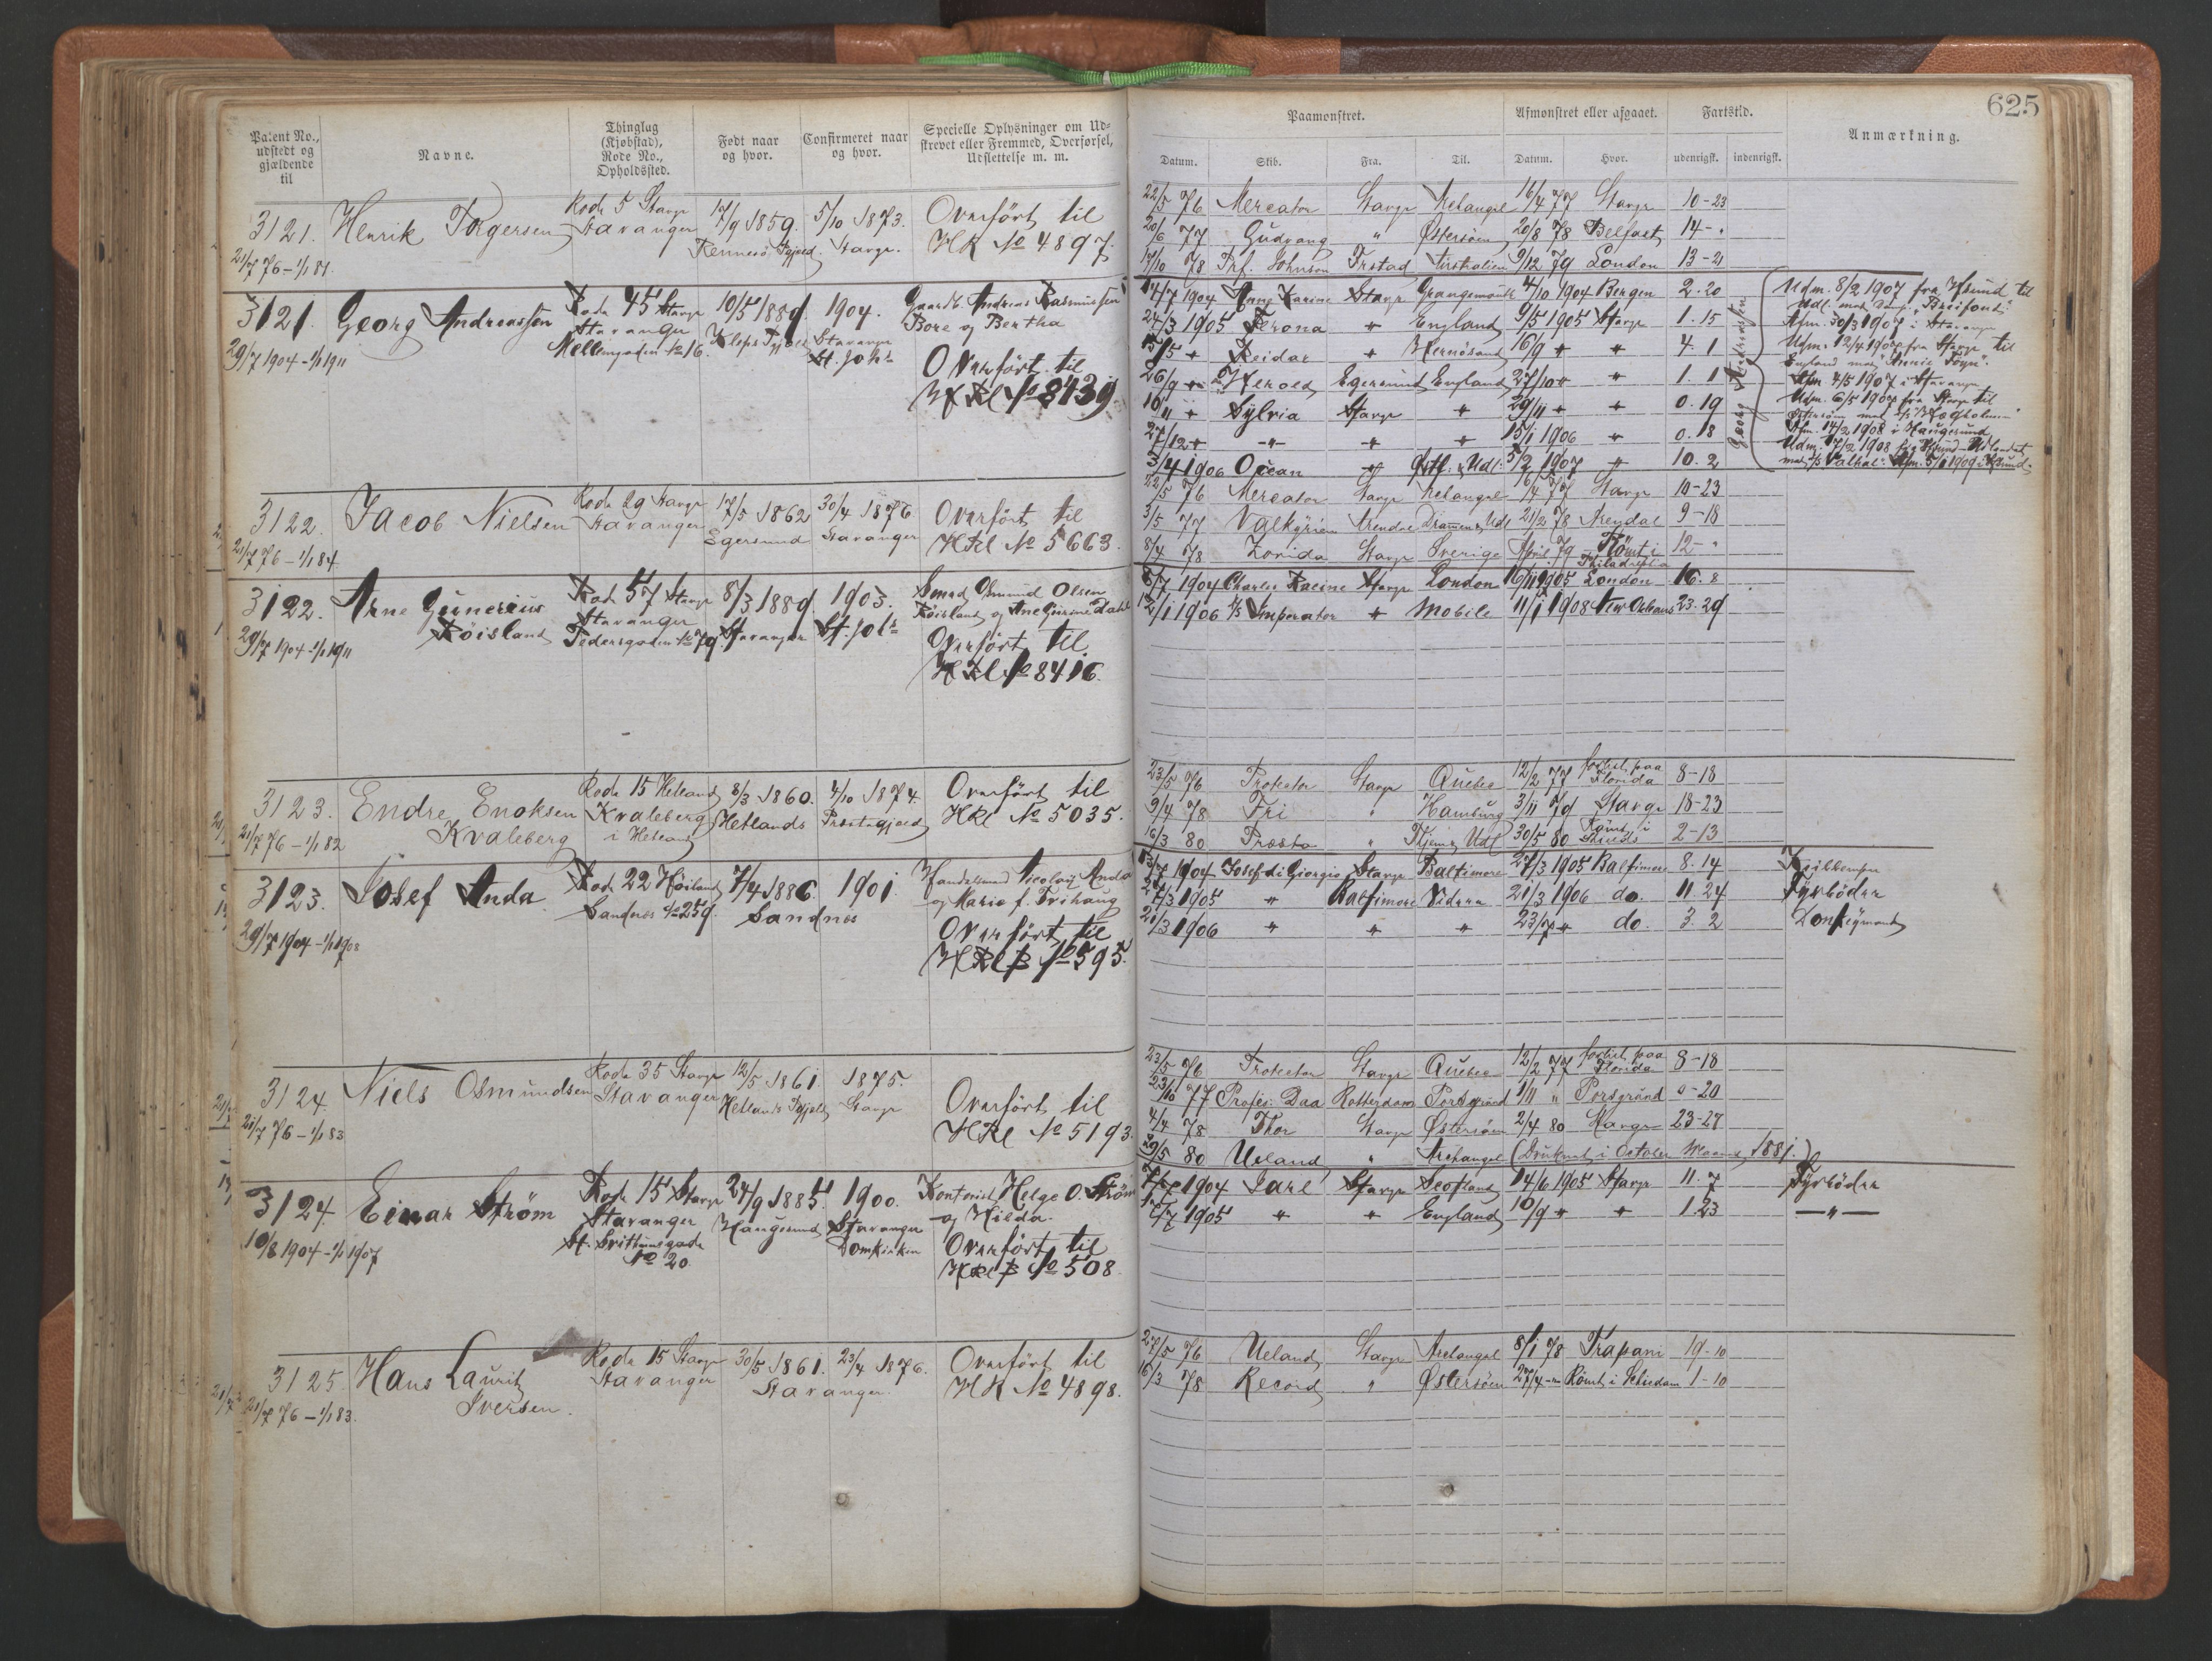 625
Patent No., udstedt og gjældende til
Navne.
Thinglag (Kjøbstad), Rode No., Opholdssted.
Født naar og hvor.
Confirmeret naar og hvor.
Specielle Oplysninger om Udskrevet eller Fremmed, Overførsel, Udslettelse m. m.
Paamonstret.
Afmonstret eller afgaaet.
Fartstid.
Anmærkning.
Datum. Skib. Fra. Til. Datum. Hvor. udenrigsk. indenrigsk.
3121. Henrik Torgersen
21/7 76 – 1/1 81.
Rode 5 Stavgr
Stavanger
17/9 1859.
Rennesö Pgjæld.
5/10 1873.
Stavgr.
Overfört til
HR No 4897.
22/5 76 Mercator Stavgr Archangel 16/4 77 Stavgr 10-23
20/6 77 Gudvang " Østersöen 20/8 78 Belfast 14- "
17/10 78 Prf. Johnson Frstad Australien 9/12 79 London 13-21
3121. Georg Andreassen
29/7 1904 – 1/1 1911
Rode 45 Stavgr
Stavanger
Mellemgaden No 16.
10/5 1889.
Kleps Pgjæld
1904.
Stavanger
St. Joh.
Gaardb. Andreas Rasmussen
Bore og Bertha
Overfört til
HRl No 8439
14/7 1904 Anne Karine Stavgr Grangemouth 4/10 1904 Bergen 2.20
24/3 1905 Verona " England 9/5 1905 Stavgr 1.15
15/5 " Reidar " Hernösand 16/9 " " 4.1
26/9 " Herold Egersund England 27/10 " " 1.1
10/11 " Sylvia Stavgr " 29/11 " " 0.19
27/12 " -"- " " 15/1 1906 " 0.18
3/4 1906 Ocean " Østf. & Udl. 5/2 1907 " 10.2
Georg Andreassen
Udm. 8/2 1907 fra Hsund til
Udl. med Damp. "Breifond."
Afm. 30/3 1907 i Stavanger
Udm. 12/4 1907 fra Stavgr til
England med "Annie Pogn".
Afm. 4/5 1907 i Stavanger
Udm. 6/5 1907 fra Stavgr til
Afm. 14/2 1908 i Haugesund
med s/s "Valhal". Afm. 5/1 1909 i Hsund.
3122. Jacob Nielsen
21/7 76 – 1/1 84.
Rode 29 Stavgr
Stavanger
17/5 1862
Egersund
30/4 1876
Stavanger
Overfört til
HRl No 5663.
22/5 76 Mercator Stavgr Archangel 16/4 77 Stavgr 10-23
3/5 77 Valkyrien Arendal Drammen & Udl 21/2 78 Arendal 9-18
8/4 78 Zorida Stavgr Sverige April 79 Römt i Philadelphia 12- "
3122. Arne Gunerius
Röisland
29/7 1904 – 1/1 1911
Rode 57 Stavgr
Stavanger
Pedersgaden No 79.
8/3 1889.
Stavanger
1903.
St. Joh.
Smed Osmund Olsen
Röisland og Ane Gurine Dahl
Overfört til
HRl No 8416.
6/7 1904 Charles Racine Stavgr London 16/11 1905 London 16.8
12/1 1906 S/S Imperator " Mobile 11/1 1908 New Orleans 23.29
3123. Endre Enoksen
Kvaleberg
21/7 76 – 1/1 82
Rode 15 Hetland
Kvaleberg
i Hetland
8/3 1860.
Hetlands
4/10 1874.
Præstegjæld
Overfört til
HRl No 5035.
23/5 76 Protector Stavgr Quebec 12/2 77 forlist paa Florida 8-18
9/4 78 Fri " Hamburg 3/11 79 Stavgr 18-23
16/3 80 Præsto " Tkjem & Udl 30/5 80 Römt i Shields 2-13
3123. Josef Anda
29/7 1904 – 1/1 1908
Rode 22 Höiland
Sandnes No 259.
7/4 1886.
Sandnes
1901
Handelsmand Nicolay Anda
og Marie f. Trihaug
Overfört til
HRl B No 595.
13/7 1904 Josef di Giorgio Stavgr Baltimore 27/3 1905 Baltimore 8.14
27/3 1905 " Baltimore Videre 21/3 1906 do. 11.24 Fyrböder
21/3 1906 " " " 23/7 " do. 3.2 Donkeymand
3124. Niels Osmundsen
21/7 76 – 1/1 83
Rode 35 Stavgr
Stavanger
12/5 1861.
Hetlands Pgjæld
1875.
Stavgr
Overfört til
HRl No 5193.
23/5 76 Protector Stavgr Quebec 12/2 77 forlist paa Florida 8-18
23/10 77 Profes. Daa Rotterdam Porsgrund 1/11 " Porsgrund 0-20
4/4 78 Thor Stavgr Østersöen 2/4 80 Stavgr 23-27
29/5 80 Ueland " Archangel (Druknet i October Maaned 1881.)
3124. Einar Ström
10/8 1904 – 1/1 1907
Rode 15 Stavgr
Stavanger
St. Svithunsgade
No 20
24/9 1885
Haugesund
1900.
Stavanger
Domkirken
Kontorist Helge O. Ström
og Hilda.
Overfört til
HRl B No 508.
7/7 1904 Jarl Stavgr Scotland 14/6 1905 Stavgr 11.7 Fyrböder
17/7 1905 " " England 10/9 " " 1.23 —"—
3125. Hans Laurits
Iversen.
21/7 76 – 1/1 83.
Rode 15 Stavgr
Stavanger
30/5 1861.
23/4 1876.
Stavanger.
Overfört til
HR No 4898.
27/5 76 Ueland Stavgr Archangel 8/1 78 Trapani 19-10
16/3 78 Record " Østersöen 27/4 - Römt i Schiedam 1-10